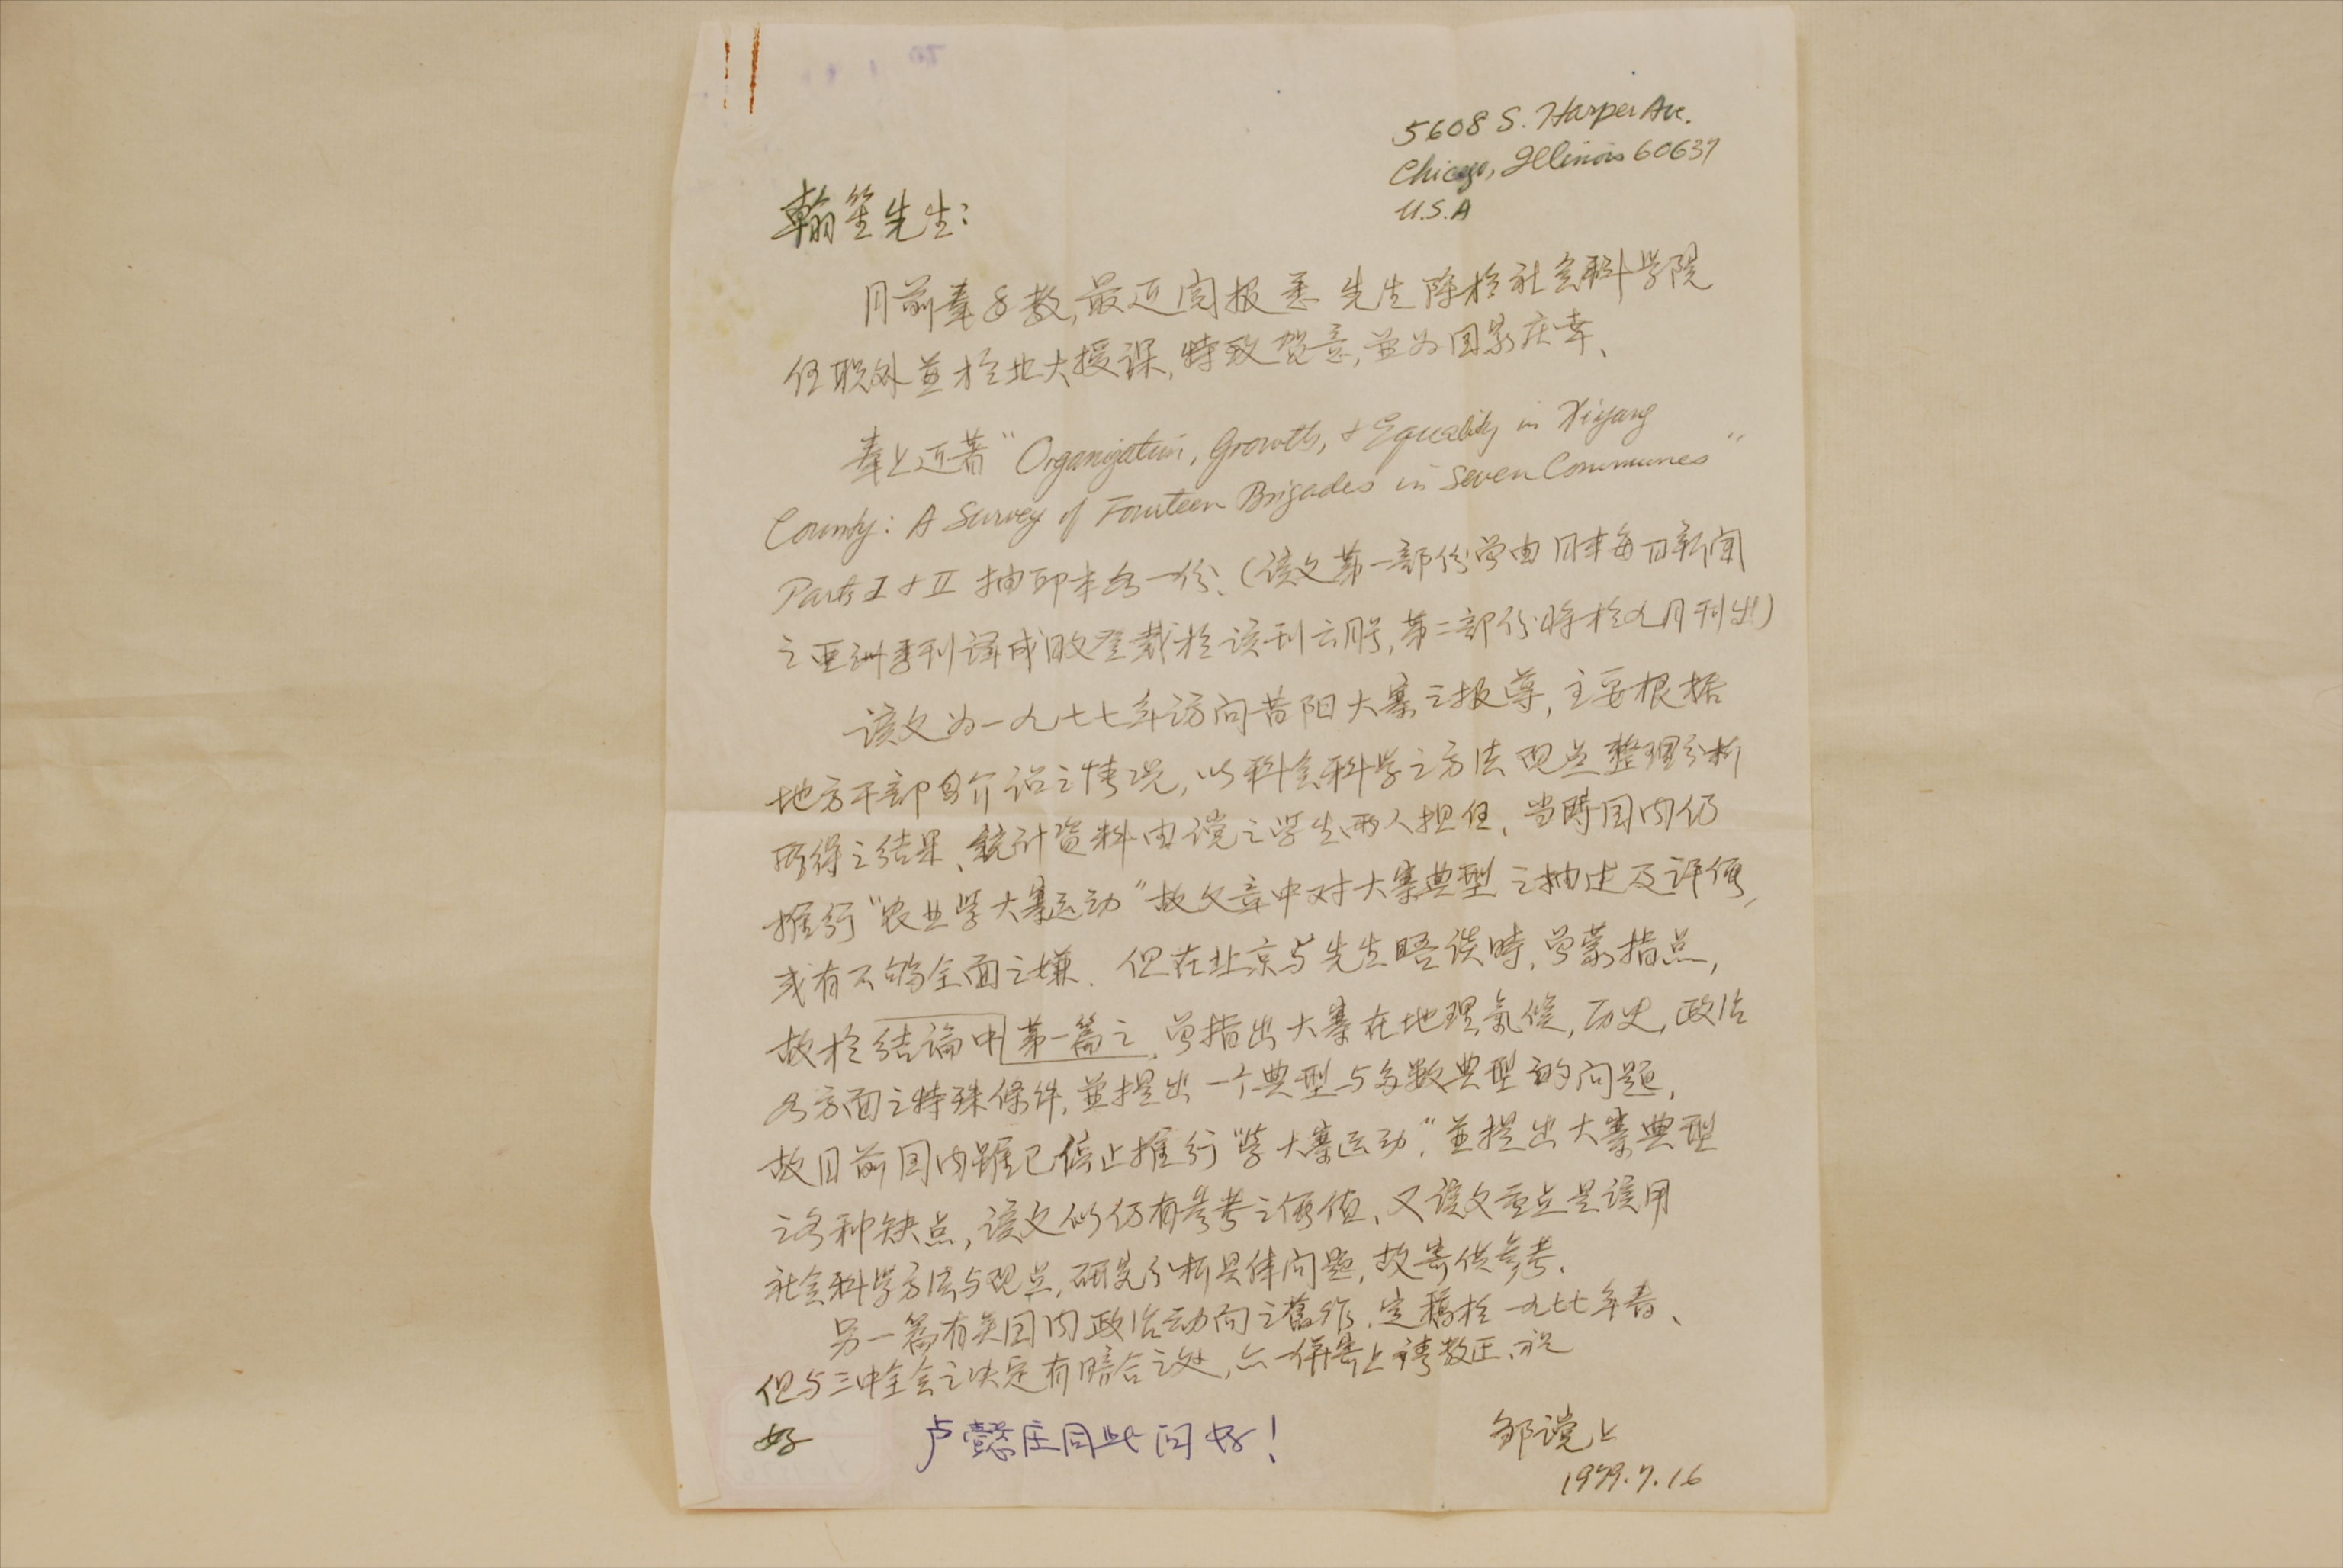 5608 S. Harper Ave.
Chicago, Illinois 60637
U.S.A
翰笙先生：
月前奉手教，最近阅报悉 先生除於社会科学院
任职外並於北大授课，特致贺意，並为国家庆幸、
奉上近著“Organization, Growth, & Equality in Xiyang
County: A Survey of Fourteen Brigades in Seven Communes”
Parts I & II 抽印本各一份、（该文第一部份曾由日本每日新闻
之亚洲季刊译成日文登载於该刊六月号，第二部份将於九月刊出）
该文为一九七七年访问昔阳大寨之报导，主要根据
地方干部介绍之情况，以社会科学之方法观点整理分析
所得之结果、统计资料由谠之学生两人担任、当時国内仍
推行“农业学大寨运动”故文章中对大寨典型之抽述及评价，
或有不够全面之嫌．但在北京与先生晤谈時，曾蒙指点，
故於结论中第一篇之，曾指出大寨在地理，氣候，历史，政治
各方面之特殊條件，並提出一个典型与多数典型的问题，
故目前国内雖已停止推行“学大寨运动”，並提出大寨典型
之各种缺点，该文似仍有参考之價值、又该文重点是误用
社会科学方法与观点，研究分析具体问题，故寄供参考．
另一篇有关国内政治动向之舊作，定稿於一九七七年春、
但与三中全会之决定有暗合之处，亦一併寄上请教正、祝
好
卢懿庄同此问好！
邹谠上
1979.7.16